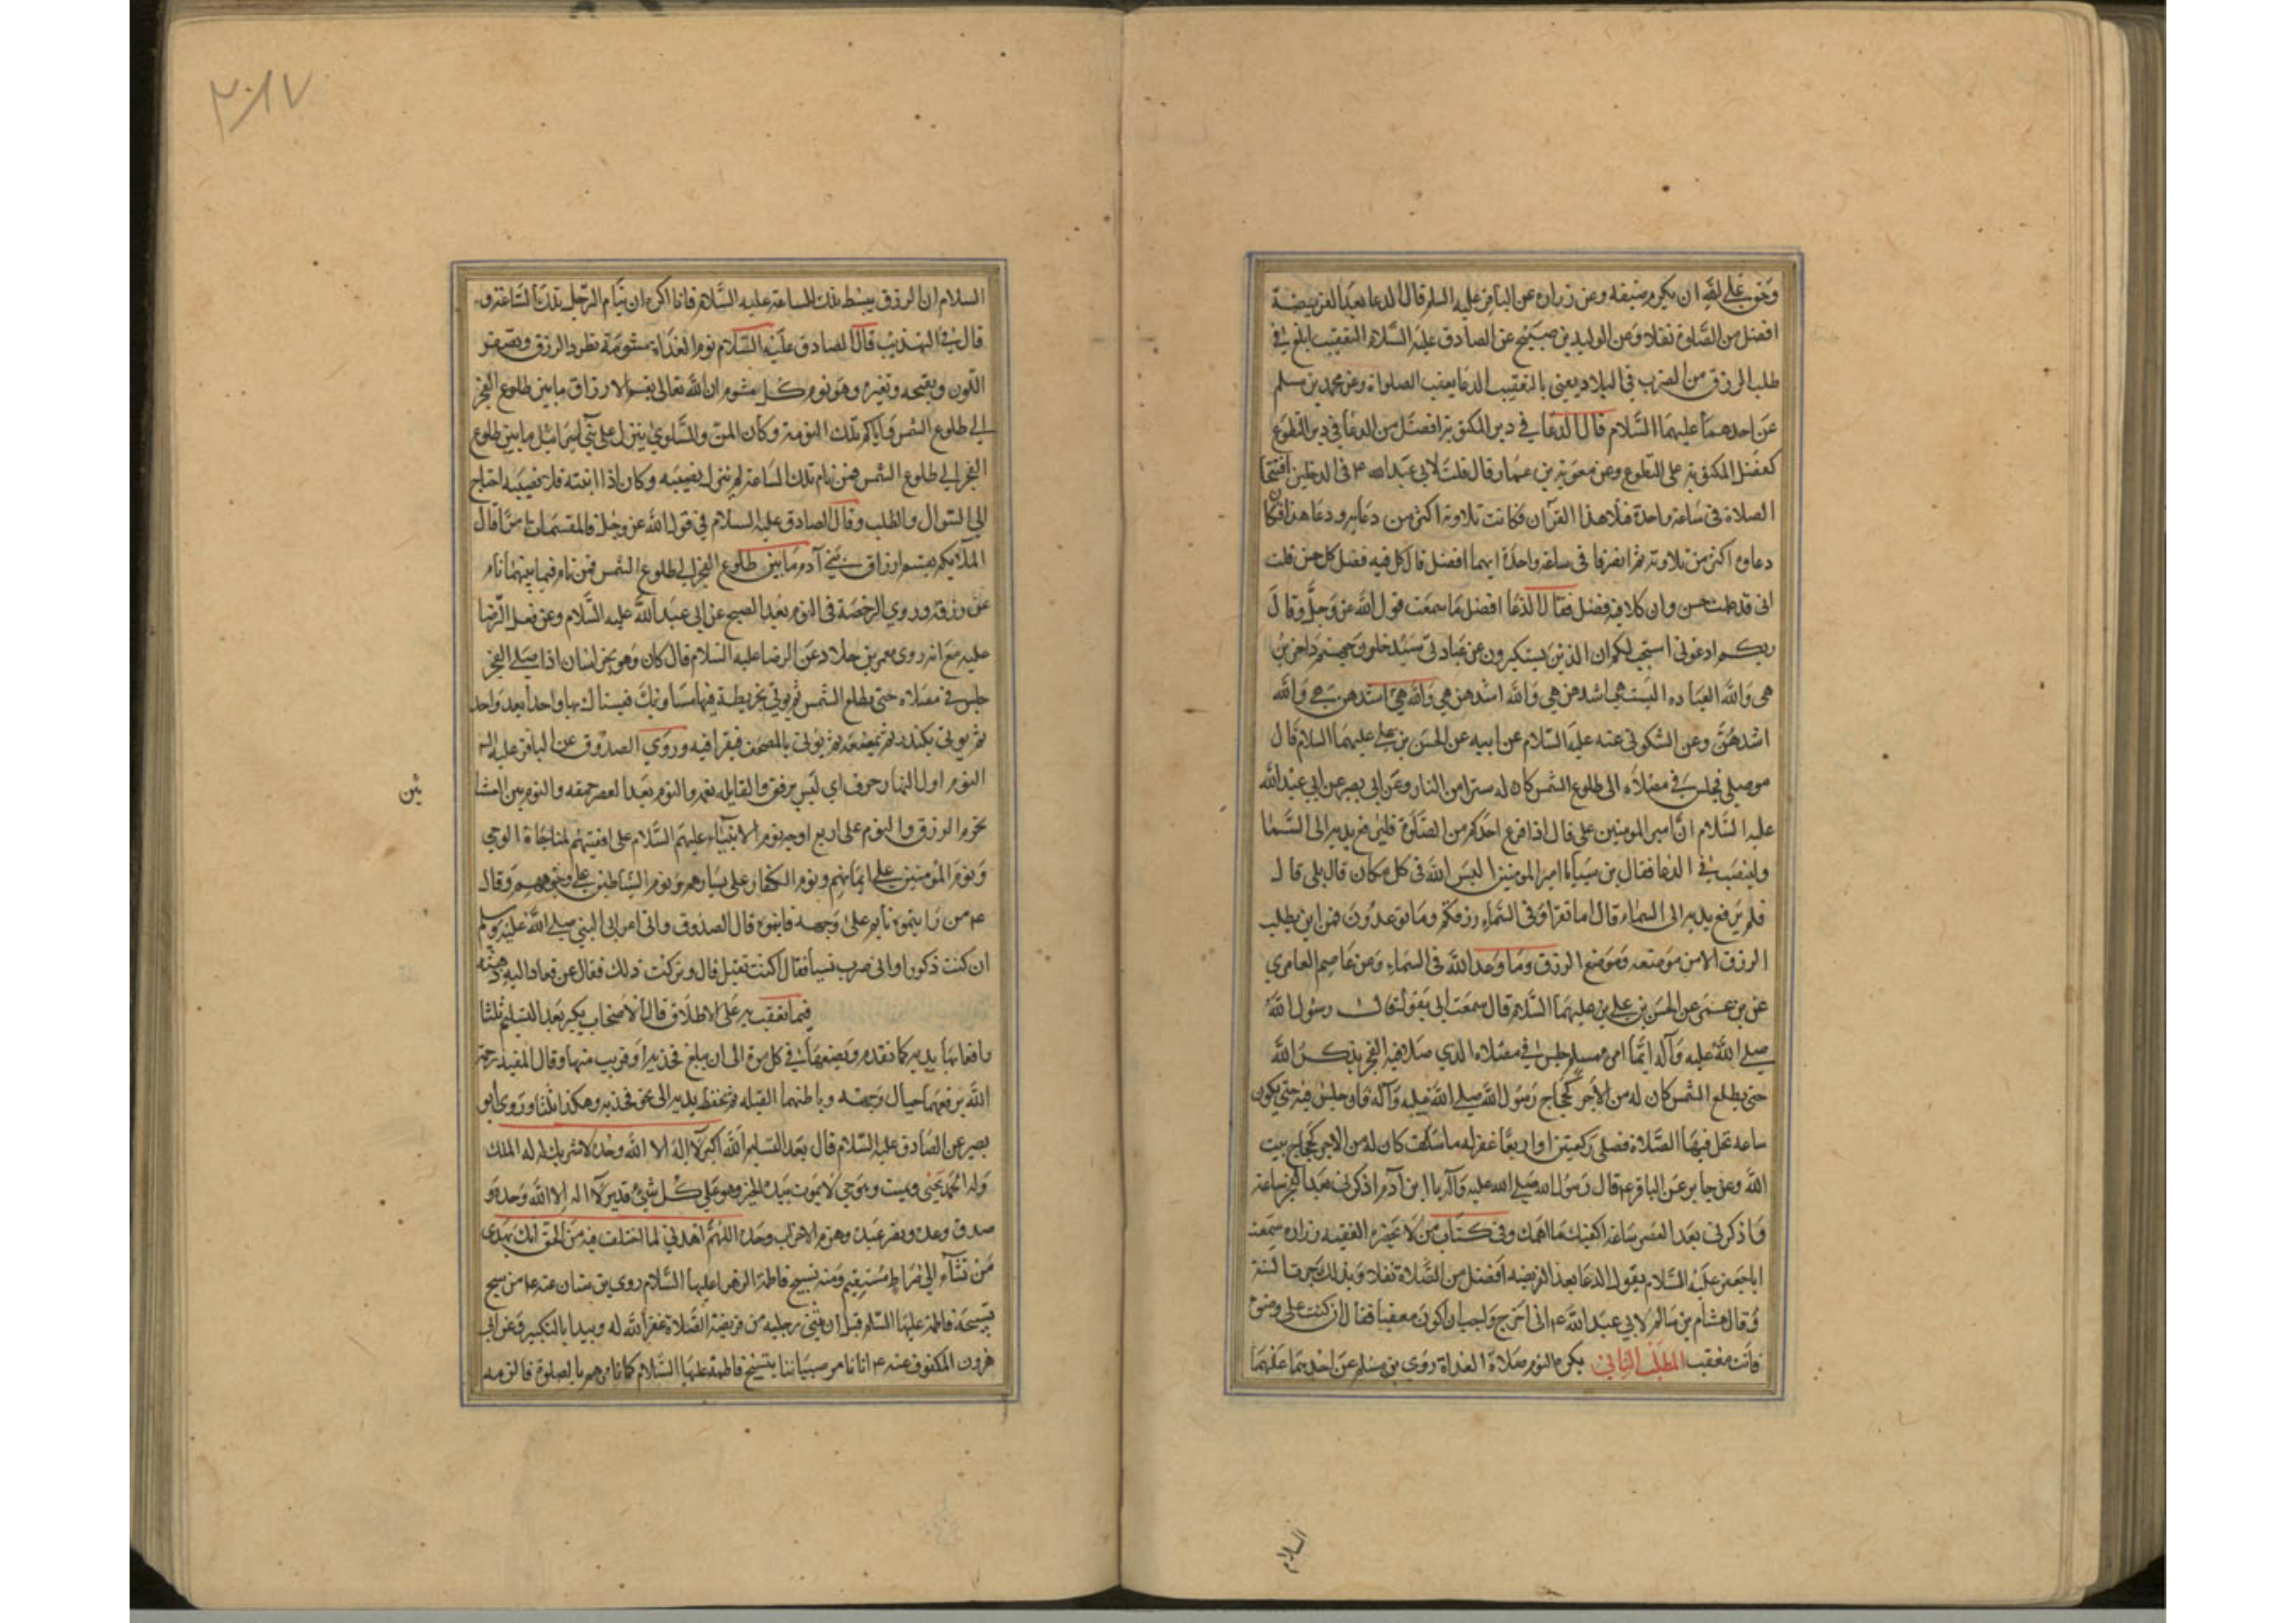 وحق على الله ان يكرم ضيفه وعن زرارة عن الباقر عليه السلم قال الدعا بعد الفريضة
افضل من الصلوة تنفلا وعن الوليد بن صبيح عن الصادق عليه السلام التعقيب ابلغ في
طلب الرزق من الضرب في البلاد يعني بالتعقيب الدعا بعقب الصلواة وعن محمد بن مسلم
عن احدهما عليهما السلام قال الدعا في دبر المكتوبة افضل من الدعا في دبر التطوع
كفضل المكتوبة على التطوع وعن معوية بن عمار قال قلت لابي عبد الله ع في الرجلين افتتحا
الصلاة في ساعة واحدة فتلا هذا القرآن فكانت تلاوته اكثر من دعايه ودعا هذا فكان
دعاوه اكثر من تلاوته ثم انصرفا في ساعة واحدة ايهما افضل قال كل فيه فضل كل حسن قلت
اني قد علمت حسن وان كلا فيه فضل فقال الدعا افضل ما سمعت قول الله عز وجل وقال
ربكم ادعوني استجب لكم ان الذين يستكبرون عن عبادتي سيدخلون جهنم داخرين
هي والله العباده اليست هي اشدهن هي والله اشدهن هي والله هي اشدهن هي والله
اشدهن وعن السكوني عنه عليه السلام عن ابيه عن الحسن بن علي عليهما السلام قال
من صلى فجلس في مصلاه الى طلوع الشمس كان له سترا من النار وعن ابي بصير عن ابي عبد الله
عليه السلام ان امير المومنين علي قال اذا فرغ احدكم من الصلوة فليرفع يديه الى السما
ولينصب في الدعا فقال بن سبا يا امير المومنين اليس الله في كل مكان قال بلى قال
فلم يرفع يديه الى السماء قال اما تقرا وفي السماء رزقكم وما توعدون فمن اين يطلب
الرزق الا من موضعه وموضع الرزق وما وعد الله في السماء وعن عاصم العامري
عن بن عمر عن الحسن بن علي بن عليهما السلام قال سمعت ابي يقول قال رسول الله
صلى الله عليه وآله ايما امرء مسلم جلس في مصلاه الذي صلا فيه الفجر يذكر الله
حتى يطلع الشمس كان له من الأجر كحجاج رسول الله صلى الله عليه وآله فان جلس فيه حتى يكون
ساعه تحل فيها الصلاة فصلى ركعتين او اربعا غفر له ما سلف وكان له من الاجر كحجاج بيت
الله وعن جابر عن الباقر ع قال رسول الله صلى الله عليه وآله يا ابن آدم اذكرني بعد الفجر ساعة
واذكرني بعد العصر ساعة اكفيك ما اهمك وفي كتاب من لا يحضره الفقيه زراره سمعت
ابا جعفر عليه السلام يقول الدعا بعد الفريضه افضل من الصلاة تنفلا وبذلك جرت السنة
وقال هشام بن سالم لابي عبد الله ع اني اخرج واحب ان اكون معقبا فقال ان كنت على وضوء
فانت معقب المطلب الثاني يكره النوم صلاة الغداة روى بن مسلم عن احدهما عليهما
السلام
٢٠١٧
السلام ان الرزق يبسط تلك الساعة عليه السلام فانا اكره ان ينام الرجل تلك الساعة و
قال في التهذيب قال الصادق عليه السلام نوم الغداة مشومة تطرد الرزق وتصفر
اللون وتقبحه وتغيره وهو نوم كل مشوم ان الله تعالى يقسم الارزاق ما بين طلوع الفجر
الى طلوع الشمس واياكم تلك النومة وكان المن والسلوى ينزل على بني اسرائيل ما بين طلوع
الفجر الى طلوع الشمس فمن نام تلك الساعة لم ينزل نصيبه وكان اذا انتبه فلا نصيبه احتاج
الى السوال والطلب وقال الصادق عليه السلام في قول الله عز وجل فالمقسمات امرا قال
الملائكه يقسم ارزاق بني آدم ما بين طلوع الفجر الى طلوع الشمس فمن نام فيما بينهما نام
عن رزقه وروي الرخصة في النوم بعد الصبح عن ابي عبد الله عليه السلام وعن فعل الرضا
عليه مع انه روى معمر بن خلاد عن الرضا عليه السلام قال كان وهو بخراسان اذا صلى الفجر
جلس في مصلاه حتى يطلع الشمس ثم يوتى بخريطة فيها مساويك فيستاك بها واحدا بعد واحد
ثم يوتى بكندر ثم يمضغه ثم يوتى بالمصحف فيقرا فيه وروي الصدوق عن الباقر عليه السلم
النوم اول النهار خرق اي ليس برفق والقايله نعمه والنوم بعد العصر حمقه والنوم بين العشا
ئين
يحرم الرزق والنوم على اربع اوجه نوم الانبياء عليهم السلام على اقفيتهم لمناجاة الوحي
ونوم المؤمنين على ايمانهم ونوم الكفار على يسارهم ونوم الشياطين على وجوههم وقال
ع من رايتموه نايم على وجهه فانبهوه قال الصدوق واتى اعرابي النبي صلى الله عليه وسلم
ان كنت ذكورا واني صرت نسيا فقال اكنت تقيل قال وتركت ذلك فقال عن فعاد اليه ذهنه
فيما تعقب به على الاطلاق قال الاصحاب يكبر بعد التسليم ثلثا
رافعا بها يديه كما تقدم ويضعهما في كل مرة الى ان يبلغ فخذيه او قريب منها وقال المفيد رحمة
الله يرفعهما حيال وجهه وباطنهما القبله ثم يخفظ يديه الى نحو فخذيه وهكذا ثلثا وروى ابو
بصير عن الصادق عليه السلام قال بعد التسليم الله اكبر لا اله الا الله وحده لا شريك له له الملك
وله الحمد يحيي ويميت وهو حي لا يموت بيده الخير وهو على كل شيء قدير لا اله الا الله وحده و
صدق وعده ونصر عبده وهزم الاحزاب وحده اللهم اهدني لما اختلف فيه من الحق انك تهدي
من تشآء الى صراط مستقيم ومنه تسبيح فاطمة الزهرا عليها السلام روى بن سنان عنه ع من سبح
تسبيحة فاطمة عليها السلم قبل ان يثني رجليه من فريضة الصلاة غفر الله له ويبدا بالتكبير وعن ابي
هرون المكفوف عنه ع انا نامر صبياننا بتسبيح فاطمة عليها السلام كما نامرهم بالصلوة فالزمه